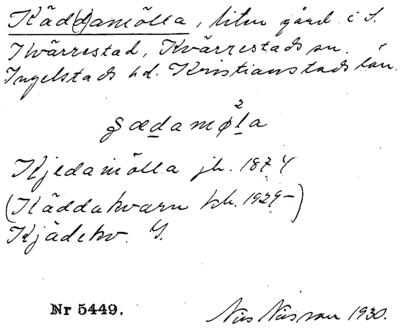 Käd(d)amölla, liten gård i S.
Kvärrestad, Kvärrestads sn.
Ingelstads hd. Kristianstads län.
Kjedamölla jb. 1874
(Käddakvarn kbk. 1929-)
Kjädekv. G.
Nr 5449. Nils Nilsson 1930.